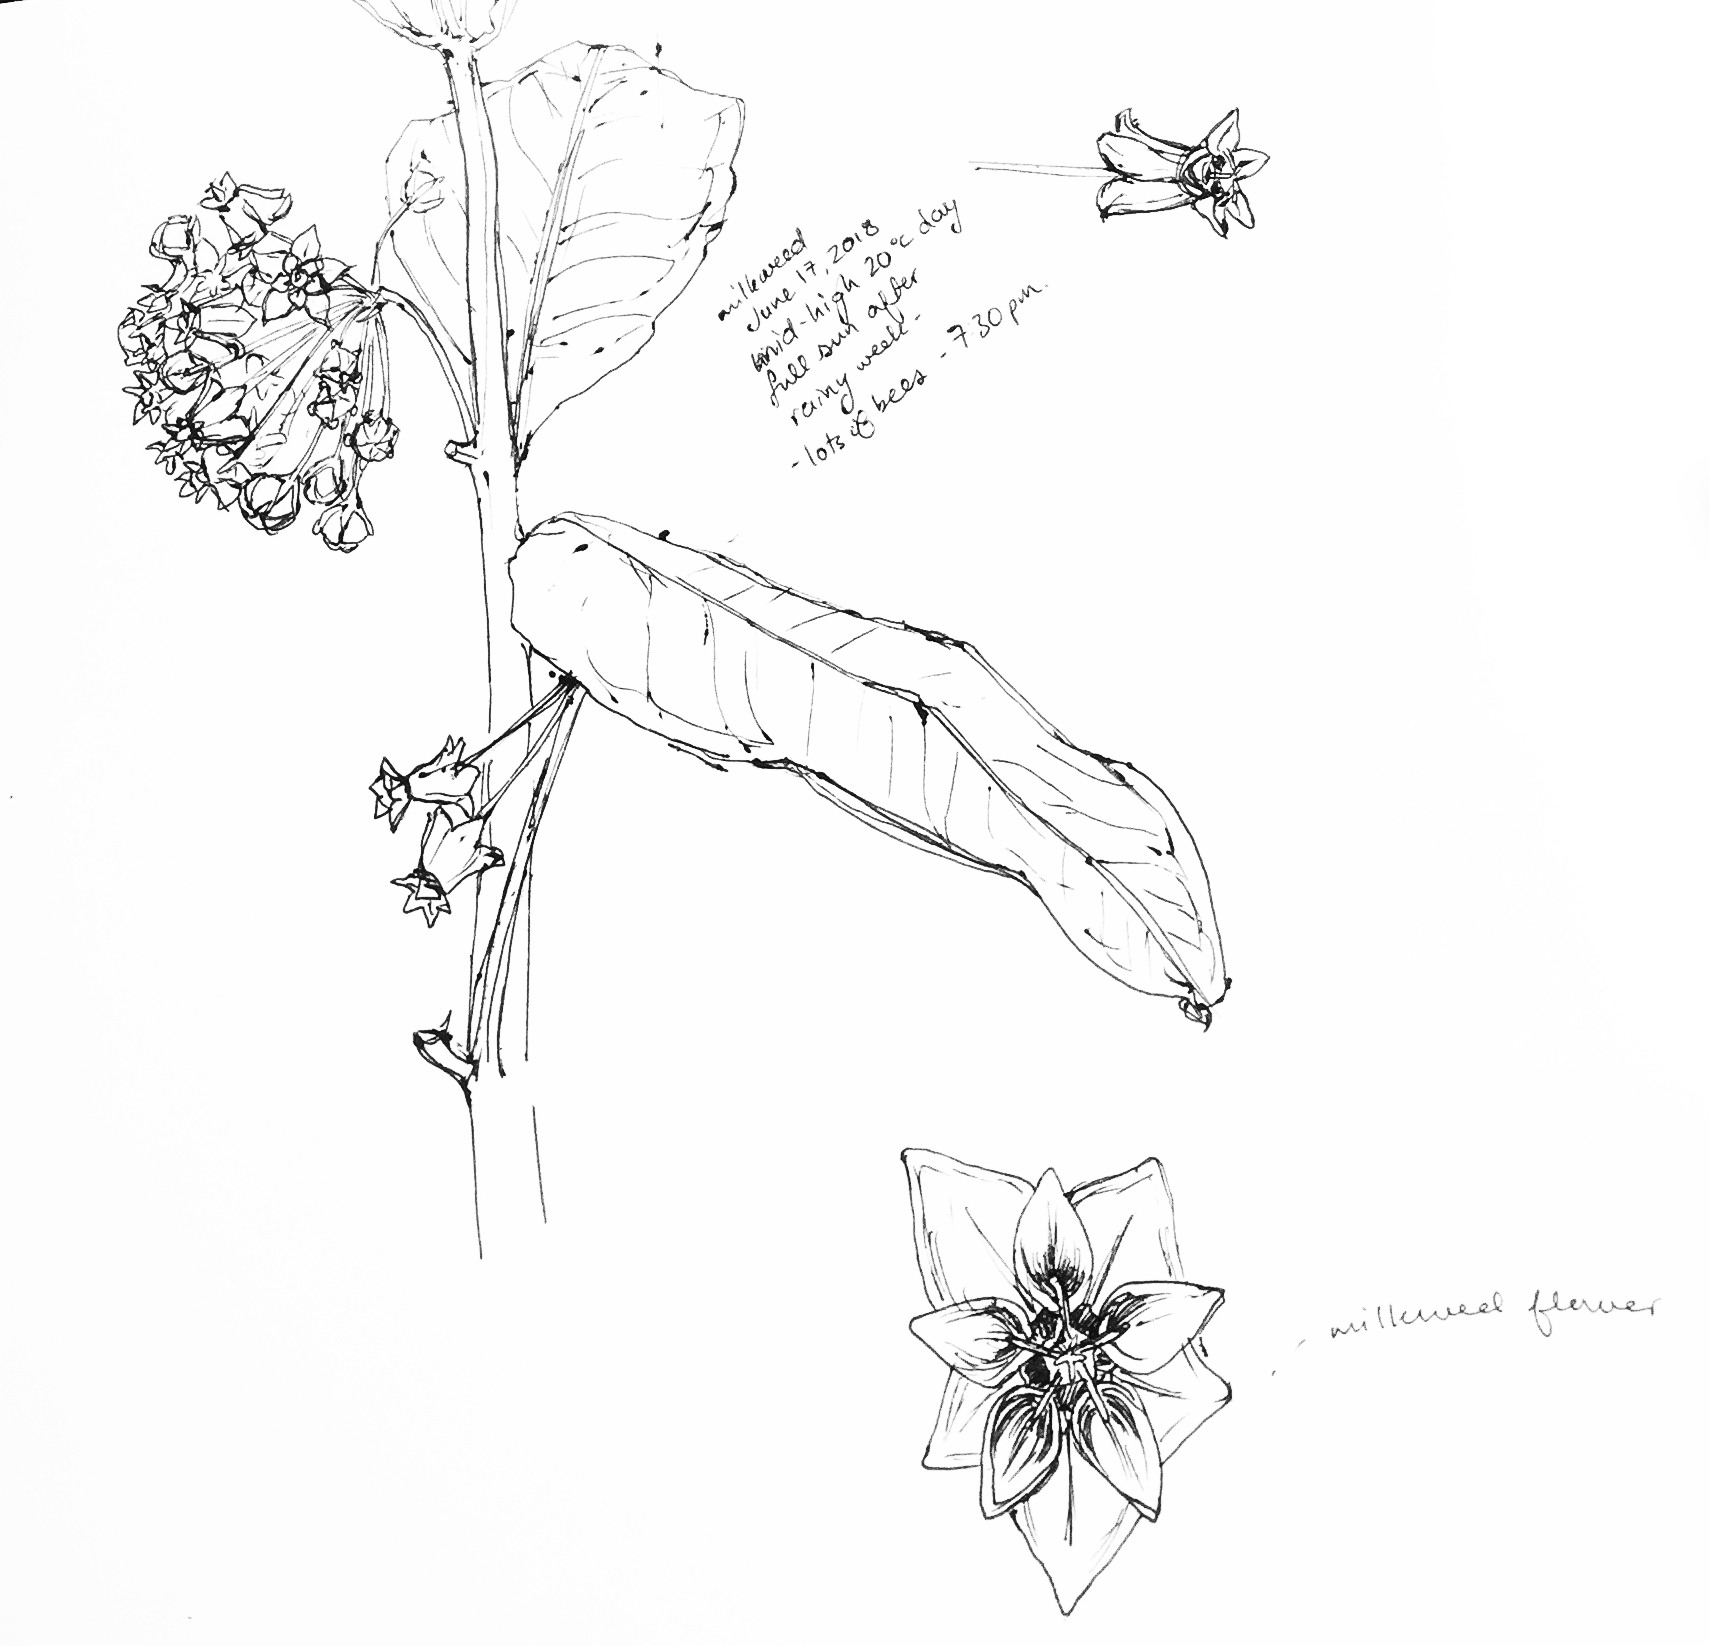 milkweed
June 17, 2018
mid-high 20°c day
full sun after
rainy week.
- lots of bees - 7:30 pm.
- milkweed flower